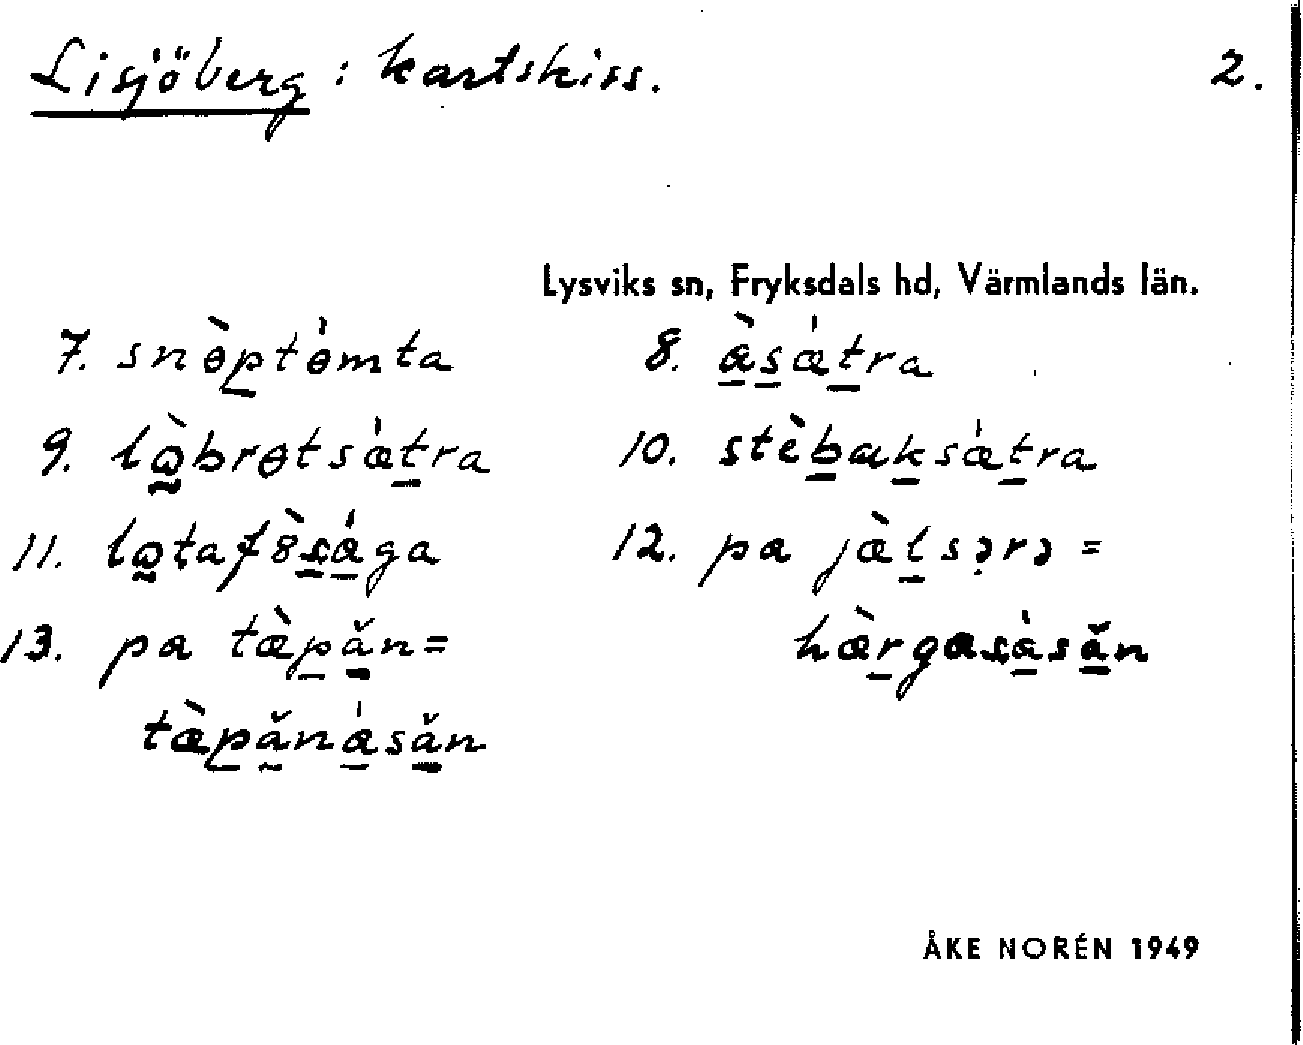 Lisjöberg : kartskiss. 2.
Lysviks sn, Fryksdals hd, Värmlands län.
7. snɵ̀ptɵ́mta 8. àsǽtra
9. lɷ̀brɵtsǽtra 10. stèbæksǽtra
11. lɷtaf8̀sága 12. pa jæ̀lsərə =
13. pa tæ̀păn= hæ̀rgasásăn
tæ̀pănásăn
ÅKE NORÉN 1949